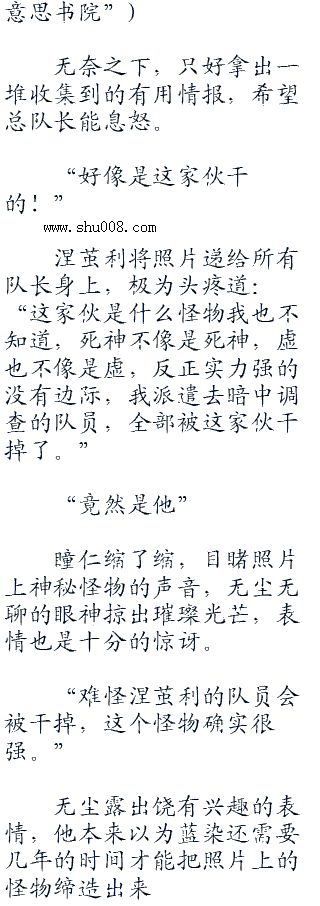 意思书院”）
无奈之下，只好拿出一
堆收集到的有用情报，希望
总队长能息怒。
“好像是这家伙干
的！”
www.shu008.com
涅茧利将照片递给所有
队长身上，极为头疼道：
“这家伙是什么怪物我也不
知道，死神不像是死神，虚
也不像是虚，反正实力强的
没有边际，我派遣去暗中调
查的队员，全部被这家伙干
掉了。”
“竟然是他”
瞳仁缩了缩，目睹照片
上神秘怪物的声音，无尘无
聊的眼神掠出璀璨光芒，表
情也是十分的惊讶。
“难怪涅茧利的队员会
被干掉，这个怪物确实很
强。”
无尘露出饶有兴趣的表
情，他本来以为蓝染还需要
几年的时间才能把照片上的
怪物缔造出来